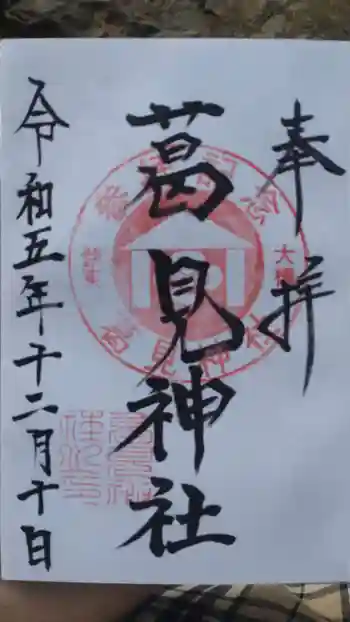 奉拝
葛見神社
令和五年十二月十日
参拝記念
葛見神社